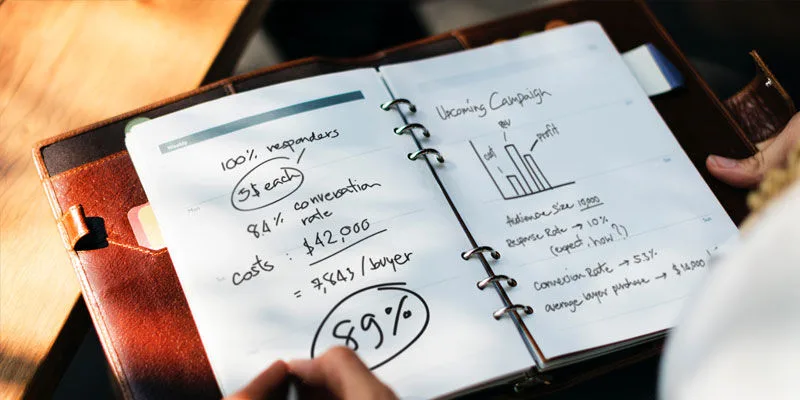 Weekly
100% responders
5$ each
8.4% conversation
rate
costs : $42,000
= 7,843 / buyer
89%
Upcoming Campaign
cost
profit
Audience size 10,000
Response Rate → 10%
(expect. how?)
Conversion Rate → 5.3%
average buyer purchase → $14,000